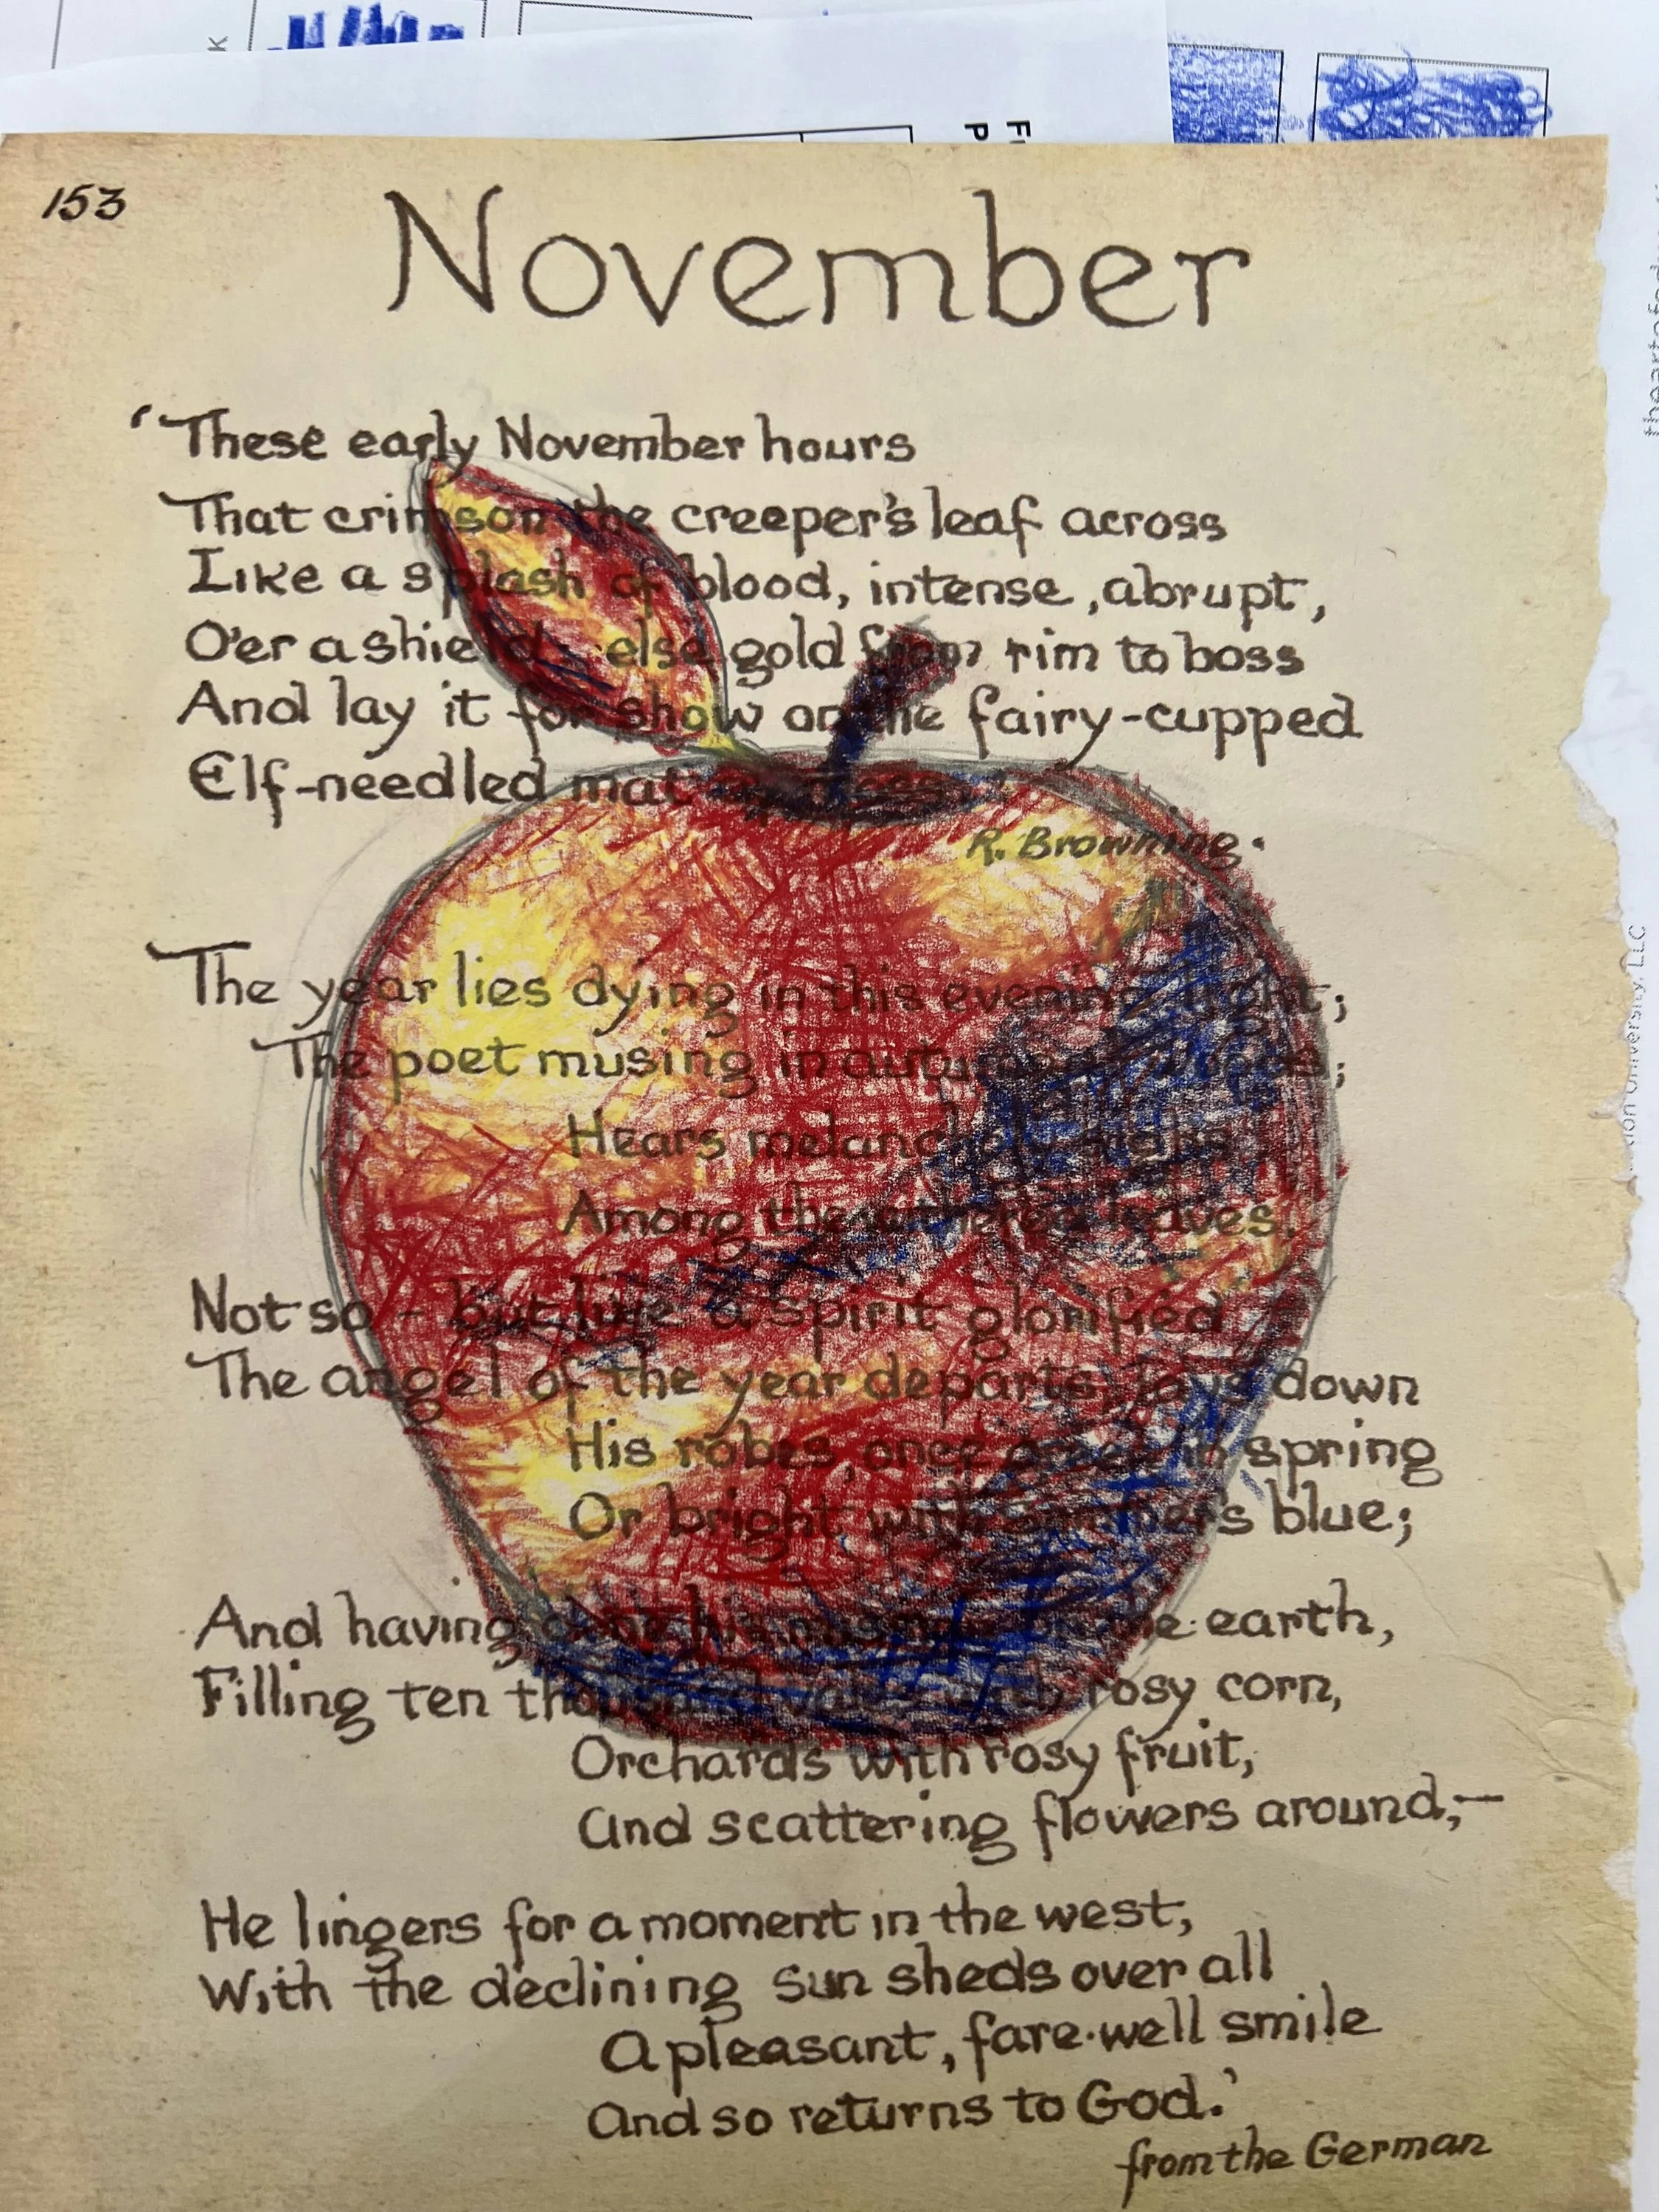 K
F
P
153
November
'These early November hours
That crimson the creeper's leaf across
Like a splash of blood, intense, abrupt,
O'er a shield, else gold from rim to boss
And lay it for show on the fairy-cupped
Elf-needled mat
R. Browning.
The year lies dying in this evening light;
The poet musing in autumnal woods;
Hears melancholy sighs
Among the withered leaves.
Not so - but like a spirit glorified
The angel of the year departs, lays down
His robes, once green in spring
Or bright with summer's blue;
And having done his mission on the earth,
Filling ten thousand vales with rosy corn,
Orchards with rosy fruit,
And scattering flowers around,—
He lingers for a moment in the west,
With the declining sun sheds over all
A pleasant, fare-well smile
And so returns to God.'
from the German
University, LLC